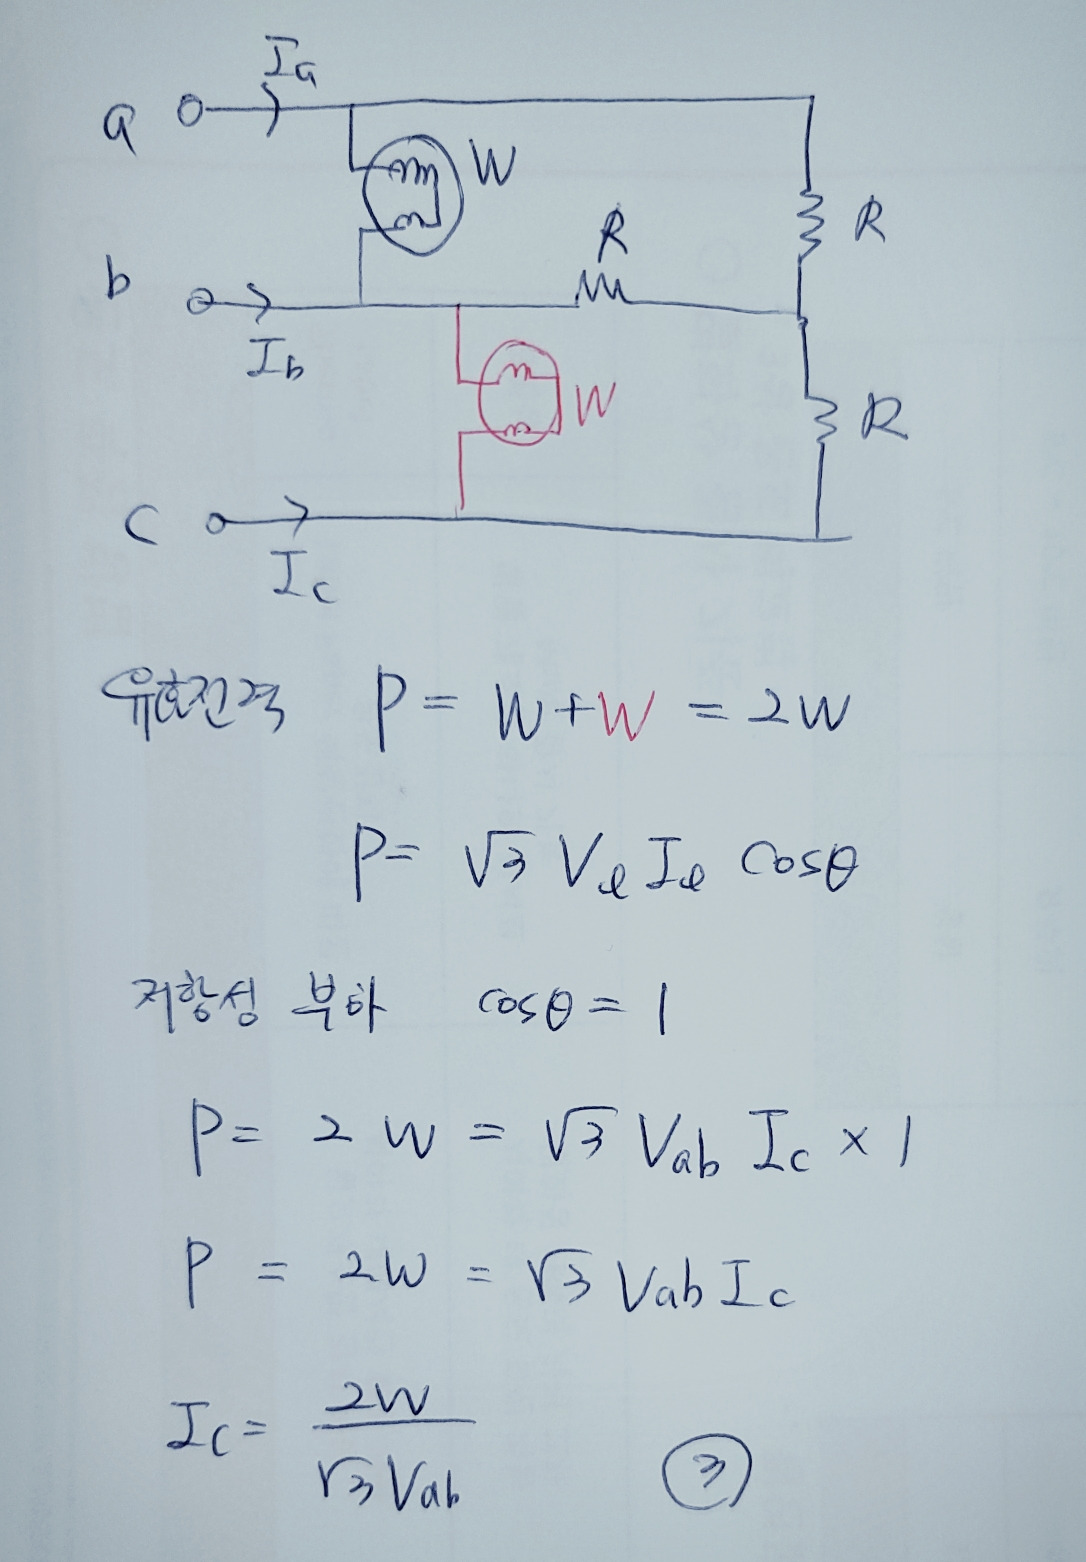 Ia
a
W
R
R
b
Ib
W
R
C
Ic
유효전력 P = W + W = 2W
P = √3 Vℓ Iℓ cosθ
저항성 부하 cosθ = 1
P = 2W = √3 Vab Ic × 1
P = 2W = √3 Vab Ic
Ic = 2W / √3 Vab ③